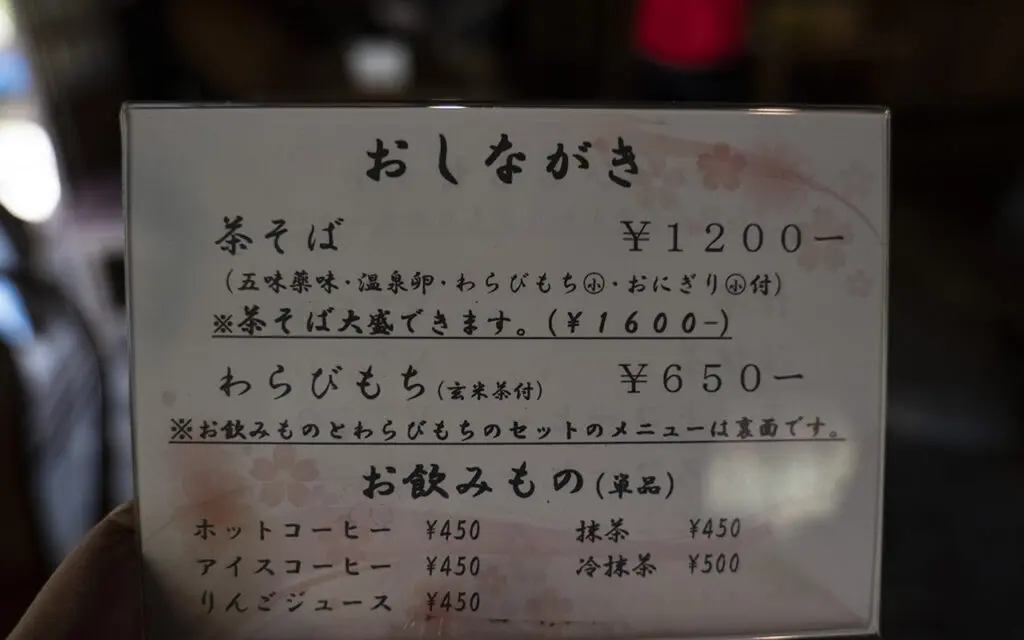 おしながき
茶そば ￥１２００ー
（五味薬味・温泉卵・わらびもち㊙小・おにぎり㊙小付）
※茶そば大盛できます。（￥１６００－）
わらびもち（玄米茶付） ￥６５０ー
※お飲みものとわらびもちのセットのメニューは裏面です。
お飲みもの（単品）
ホットコーヒー ¥450 抹茶 ¥450
アイスコーヒー ¥450 冷抹茶 ¥500
りんごジュース ¥450